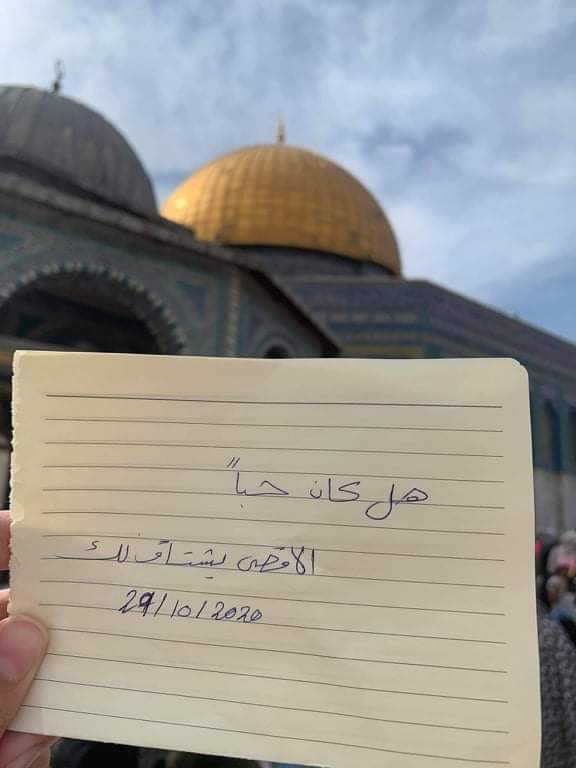 هل كان حباً
الاقصى يشتاق لك
29/10/2020